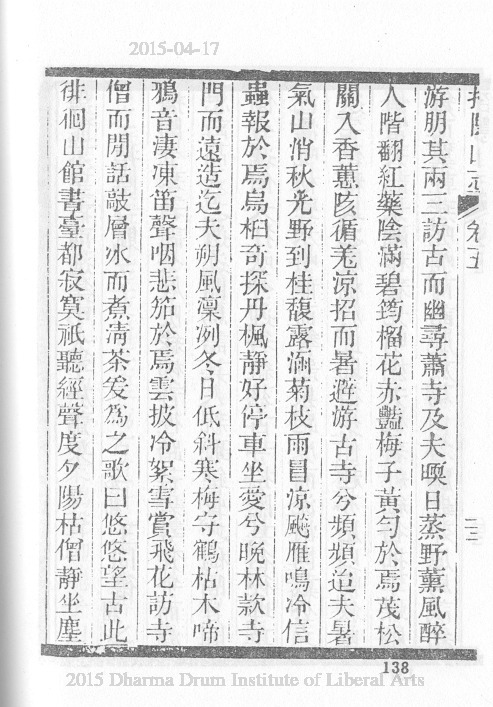 2015-04-17
卷五
二三
游朋其兩三訪古而幽尋蕭寺及夫暎日蒸野薰風醉
人階翻紅藥陰滿碧筠榴花赤豔梅子黃勻於焉茂松
關入香蕙陔循羌涼招而暑避游古寺兮頻頻迨夫暑
氣山消秋光野到桂馥露湎菊枝雨冒涼颸雁鳴冷信
蟲報於焉烏桕奇探丹楓靜好停車坐愛兮晚林款寺
門而遠造迄夫朔風凜冽冬日低斜寒梅守鶴枯木啼
鴉音淒凍笛聲咽悲笳於焉雲披冷絮雪賞飛花訪寺
僧而閒話敲層冰而煮清茶爰為之歌曰悠悠望古此
徘徊山館書臺都寂寞祇聽經聲度夕陽枯僧靜坐塵
138
2015 Dharma Drum Institute of Liberal Arts